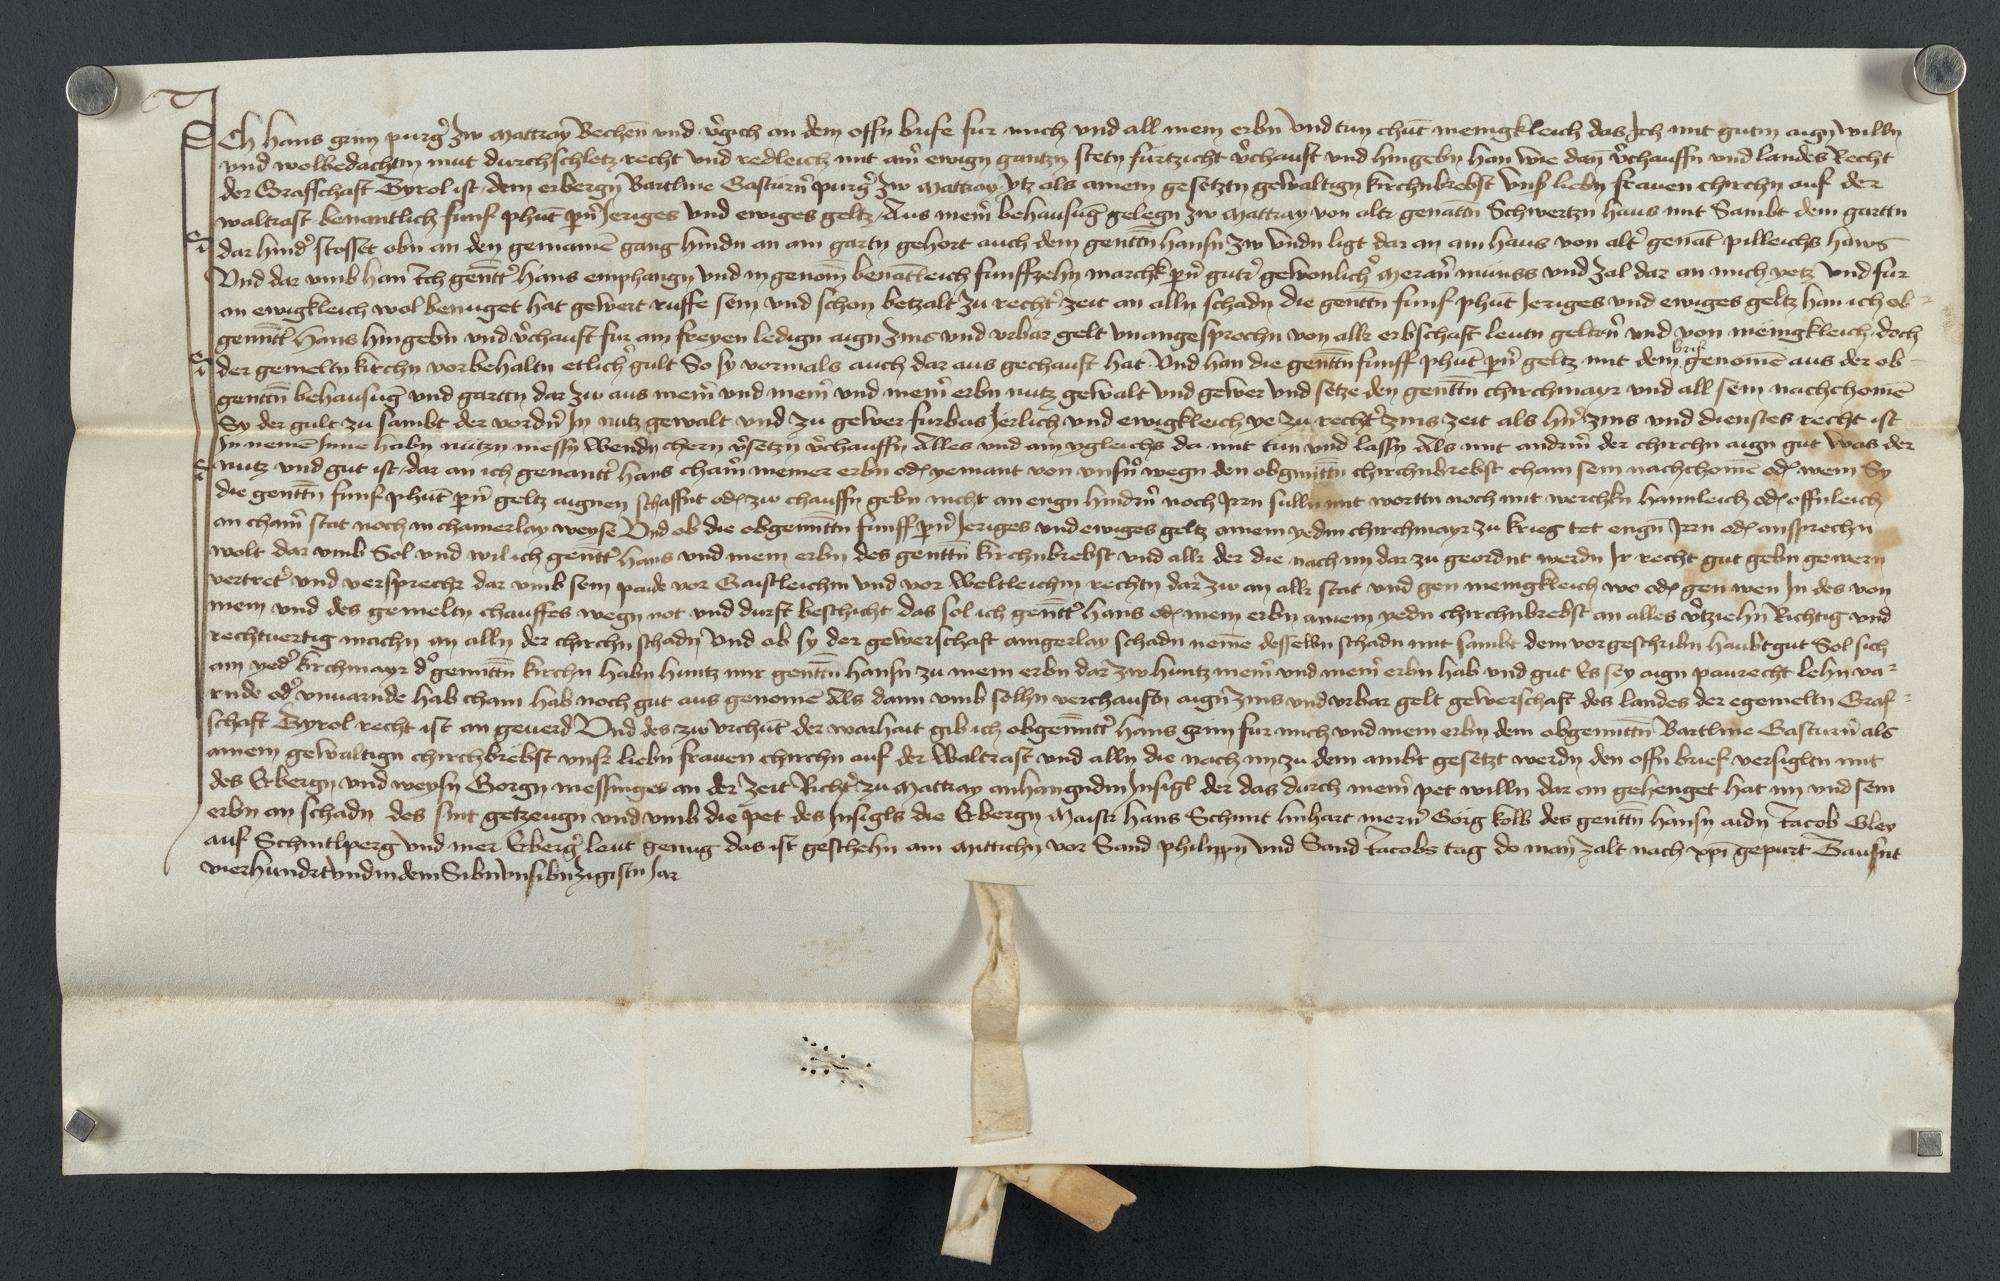 Ich Hans grim purgr̄ zw Mattray Bechen̄ vnd v̄gich an dem offn brife fur mich vnd all mein erbn vnd tun chūt menigkleich das Ich mit gutm aign willn
vnd wolbedachtm mut durchschletz recht vnd redleich mit aīm ewign gantzn stetn furtzicht v̄chauft vnd hingebn han wie dan̄ v̄chauffn vnd landes Recht
der Graffschaft Tyrol ist dem erbergn Bartlme Gasturn̄ purgr̄ zw Mattray ytz als ainem gesetztn gewaltign kirchnbrebst vnsr̄ liebn frauen chirchn auf der
waltrast benantlich funf phūt pn̄ Jeriges vnd ewiges geltz Aus mein̄ behausūg gelegn zw Mattray von altr genātn Schwertzn haus mit Sambt dem garttn
dar hindr̄ stosset obn an den gemainē gang hindn an ain gartn gehort auch dem gentt̄n hansn zw vndn ligt dar an ain haus von altr̄ genāt pilleichs haws
Vnd dar vmb han Ich gentt̄r hans emphangn vnd in genom̄ benātleich funffzehn marchk pn̄ gutr̄ gewonlichr̄ Meran̄r müniss vnd zal dar an mich yetz vnd fur
an ewigkleich wol benuget hat gewert ruffe sein vnd schon betzalt zu recht zeit an alln schadn die gentt̄n funf phūt Jeriges vnd ewiges geltz han ich ob-
gennt̄t Hans hingebn vnd v̄chauft fur ain freyen ledign aign zins vnd vrbar gelt vnangesprochn von allr erbschaft leutn geltrn̄ vnd von menigkleich doch
der gemeltn kirchn vorbehaltn etlichr̄ gult So sy vormals auch dar aus gechauft hat Vnd han die gentt̄n funff phūt pn̄ geltz mit dem brif genomē aus der ob-
gentt̄n behausūg vnd garttn dar zw aus mein̄ vnd mein̄ vnd mein̄ erbn nutz gewalt vnd gewer vnd setze den gentt̄n chirchmayr vnd all sein nachchomē
Sy der gult zu sambt der vordrn̄ In nutz gewalt vnd zu gewer furbas Jerlich vnd ewigkleich ye zu rechtr̄ zins zeit als hrn̄ zins vnd dienstes recht ist
In nemē Inne habn nutzn messn Wendn chern v̄setzn v̄chauffn Alles vnd ain ygleichs da mit tun vnd lassn Als mit andrm̄ der chirchn aign gut was der
nutz vnd gut ist dar an ich genantr̄ hans chain̄ meiner erbn odr̄ yemant von vnsrn̄ wegn den obgnttn chirchnbrebst cham sein nachchomē odr̄ wem Sy
die gentt̄n funf phūt pn̄ geltz aignen schaffnt odr̄ zw chauffn gebn nicht an engn hindrn̄ noch Irrn sulln mit worttn noch mit werchkn hainleich odr̄ offnleich
an chain̄ stat noch in chainerlay weyse Vnd ob die obgenntt̄n funff pn̄ Jeriges vnd ewiges geltz ainem yedm chirchmayr zu krieg tet engn̄ Irrn odr̄ ansprechn
wolt dar vmb Sol vnd wil ich gentt̄r hans vnd mein erbn des gentt̄n kirchnbrebst vnd allr der die nach im dar zu geordnt werdn Ir recht gut gebn gewern
vertretr̄ vnd versprechr dar vmb sein paide vor Gaistleichm vnd vor Weltleichm rechtn dar zw an allr stat vnd gen menigkleich wo odr̄ gen wen In des von
mein vnd des gemeltn chauffes wegn not vnd durft beschicht das sol ich gentt̄r hans odr̄ mein erbn ainem yedn chirchnbrebst an alles v̄tziehn Richtig vnd
rechtuertig machn an alln der chirchn schadn Vnd ob sy der gewerschaft aingerlay schadn nemē desselbn schadn mit sambt dem vorgeschribn haubtgut Sol sich
ain yedr̄ kirchmayr dr̄ genntt̄n kirchn habn hintz mir gentt̄n hansn zu mein erbn dar zw hintz mein̄ vnd mein̄ erbn hab vnd gut Es sey aign paurecht lehn va-
rnde odr̄ vnuarnde hab chain hab noch gut aus genomē Als dann vmb solhn verchauftn aign̄ zins vnd vrbar gelt gewerschaft des landes der egemeltn Graf-
schaft Tyrol recht ist an geuerd Vnd des zw vrchūt der warhait gib ich obgenntt̄r hans grim fur mich vnd mein erbn dem obgenntt̄n Bartlme Gasturn̄ als
ainem gewaltign chirchbrebst vnsr liebn frauen chirchn auf der Waltrast vnd alln die nach im zu dem ambt gesetzt werdn den offn brief versigltn mit
des Erbergn vnd weysn Gorgn messinges an der zeit Richtr̄ zu Mattray anhangndm Insigl der das durch mein̄ pet willn dar an gehenget hat im vnd sein
erbn an schadn des sint getzeugn vnd vmb die pet des Insigls die Erbergn Maistr Hans Schmit linhart mern̄ Görg kolb des gentt̄n hansn aidn̄ Jacob Gley
auf Schmtlperg vnd mer Erbergr̄ leut genug das ist geschehn am Mittichn vor Sand philippn vnd Sand Jacobs tag do man zalt nach xpī gepurt Tausnt
vierhundrt vnd in dem Sibnvnsibnzigistn Jar